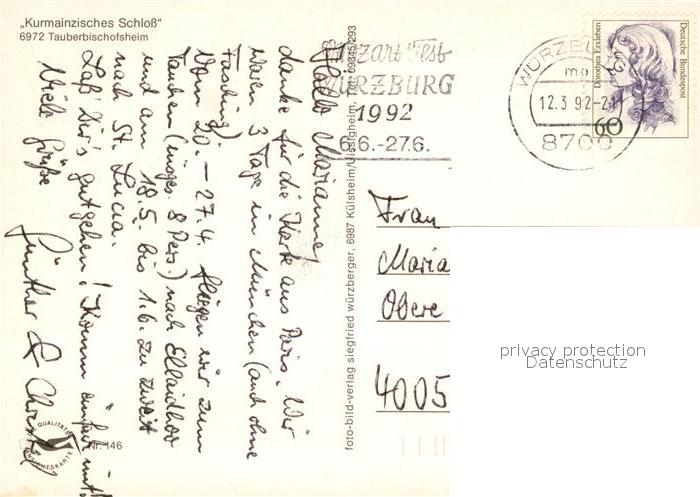 „Kurmainzisches Schloß“
6972 Tauberbischofsheim
Hallo Marianne,
danke für die Karte aus Paris. Wir
waren 3 Tage in München (auch ohne
Fasching)
Vom 20. – 27.4. fliegen wir zum
Tauchen (insges. 8 Pers.) nach Ellaidhoo
und am 18.5. bis 1.6. zu zweit
nach St. Lucia.
Laß' Dir's gut gehen! Komm' einfach mit!
Viele Grüße
Günther & Christel
QUALITÄTS
ANSICHTSKARTE
Nr. 146
foto-bild-verlag siegfried würzberger, 6987 Külsheim/Uissigheim, Tel. 09345/293
Mozartfest
WÜRZBURG
1992
6.6.-27.6.
WÜRZBURG
12.3.92-21
8700
Dorothea Erxleben
Deutsche Bundespost
60
Frau
Maria
Obere
4005
privacy protection
Datenschutz